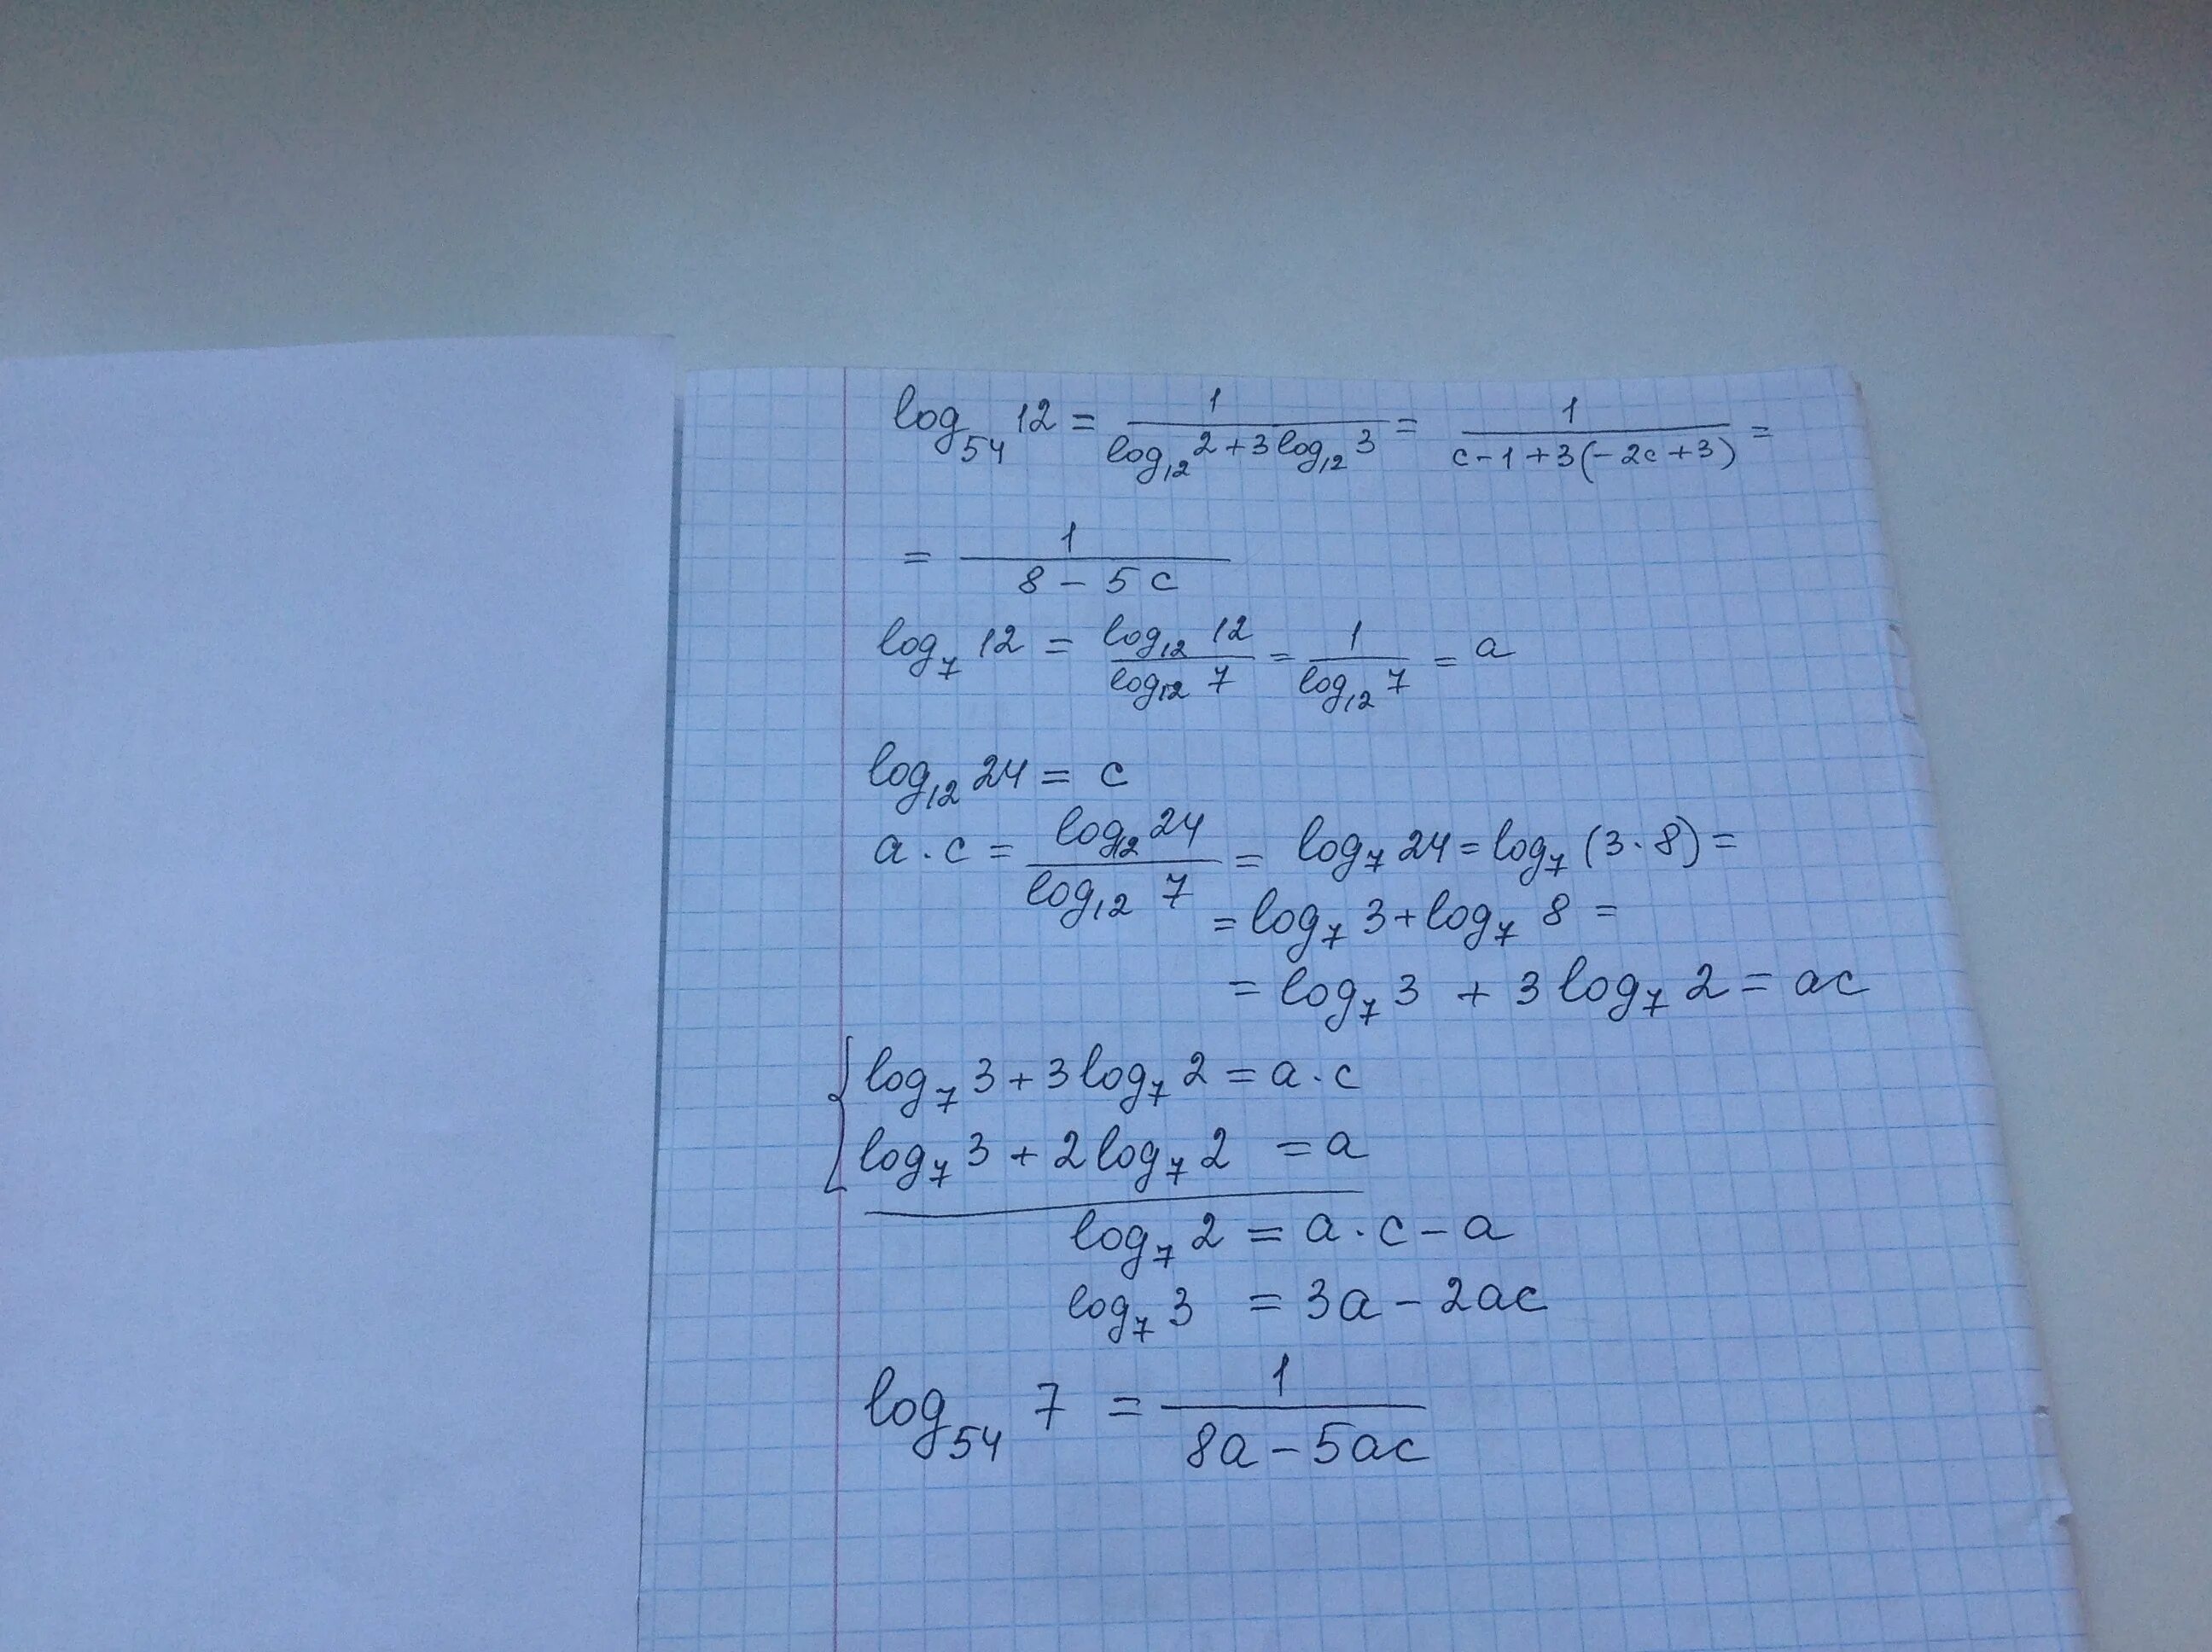 log₅₄ 12 = 1/(log₁₂ 2 + 3 log₁₂ 3) = 1/(c - 1 + 3(-2c + 3)) =
= 1/(8 - 5c)
log₇ 12 = (log₁₂ 12)/(log₁₂ 7) = 1/(log₁₂ 7) = a
log₁₂ 24 = c
a · c = (log₁₂ 24)/(log₁₂ 7) = log₇ 24 = log₇ (3 · 8) =
= log₇ 3 + log₇ 8 =
= log₇ 3 + 3 log₇ 2 = ac
{ log₇ 3 + 3 log₇ 2 = a · c
log₇ 3 + 2 log₇ 2 = a
log₇ 2 = a · c - a
log₇ 3 = 3a - 2ac
log₅₄ 7 = 1/(8a - 5ac)